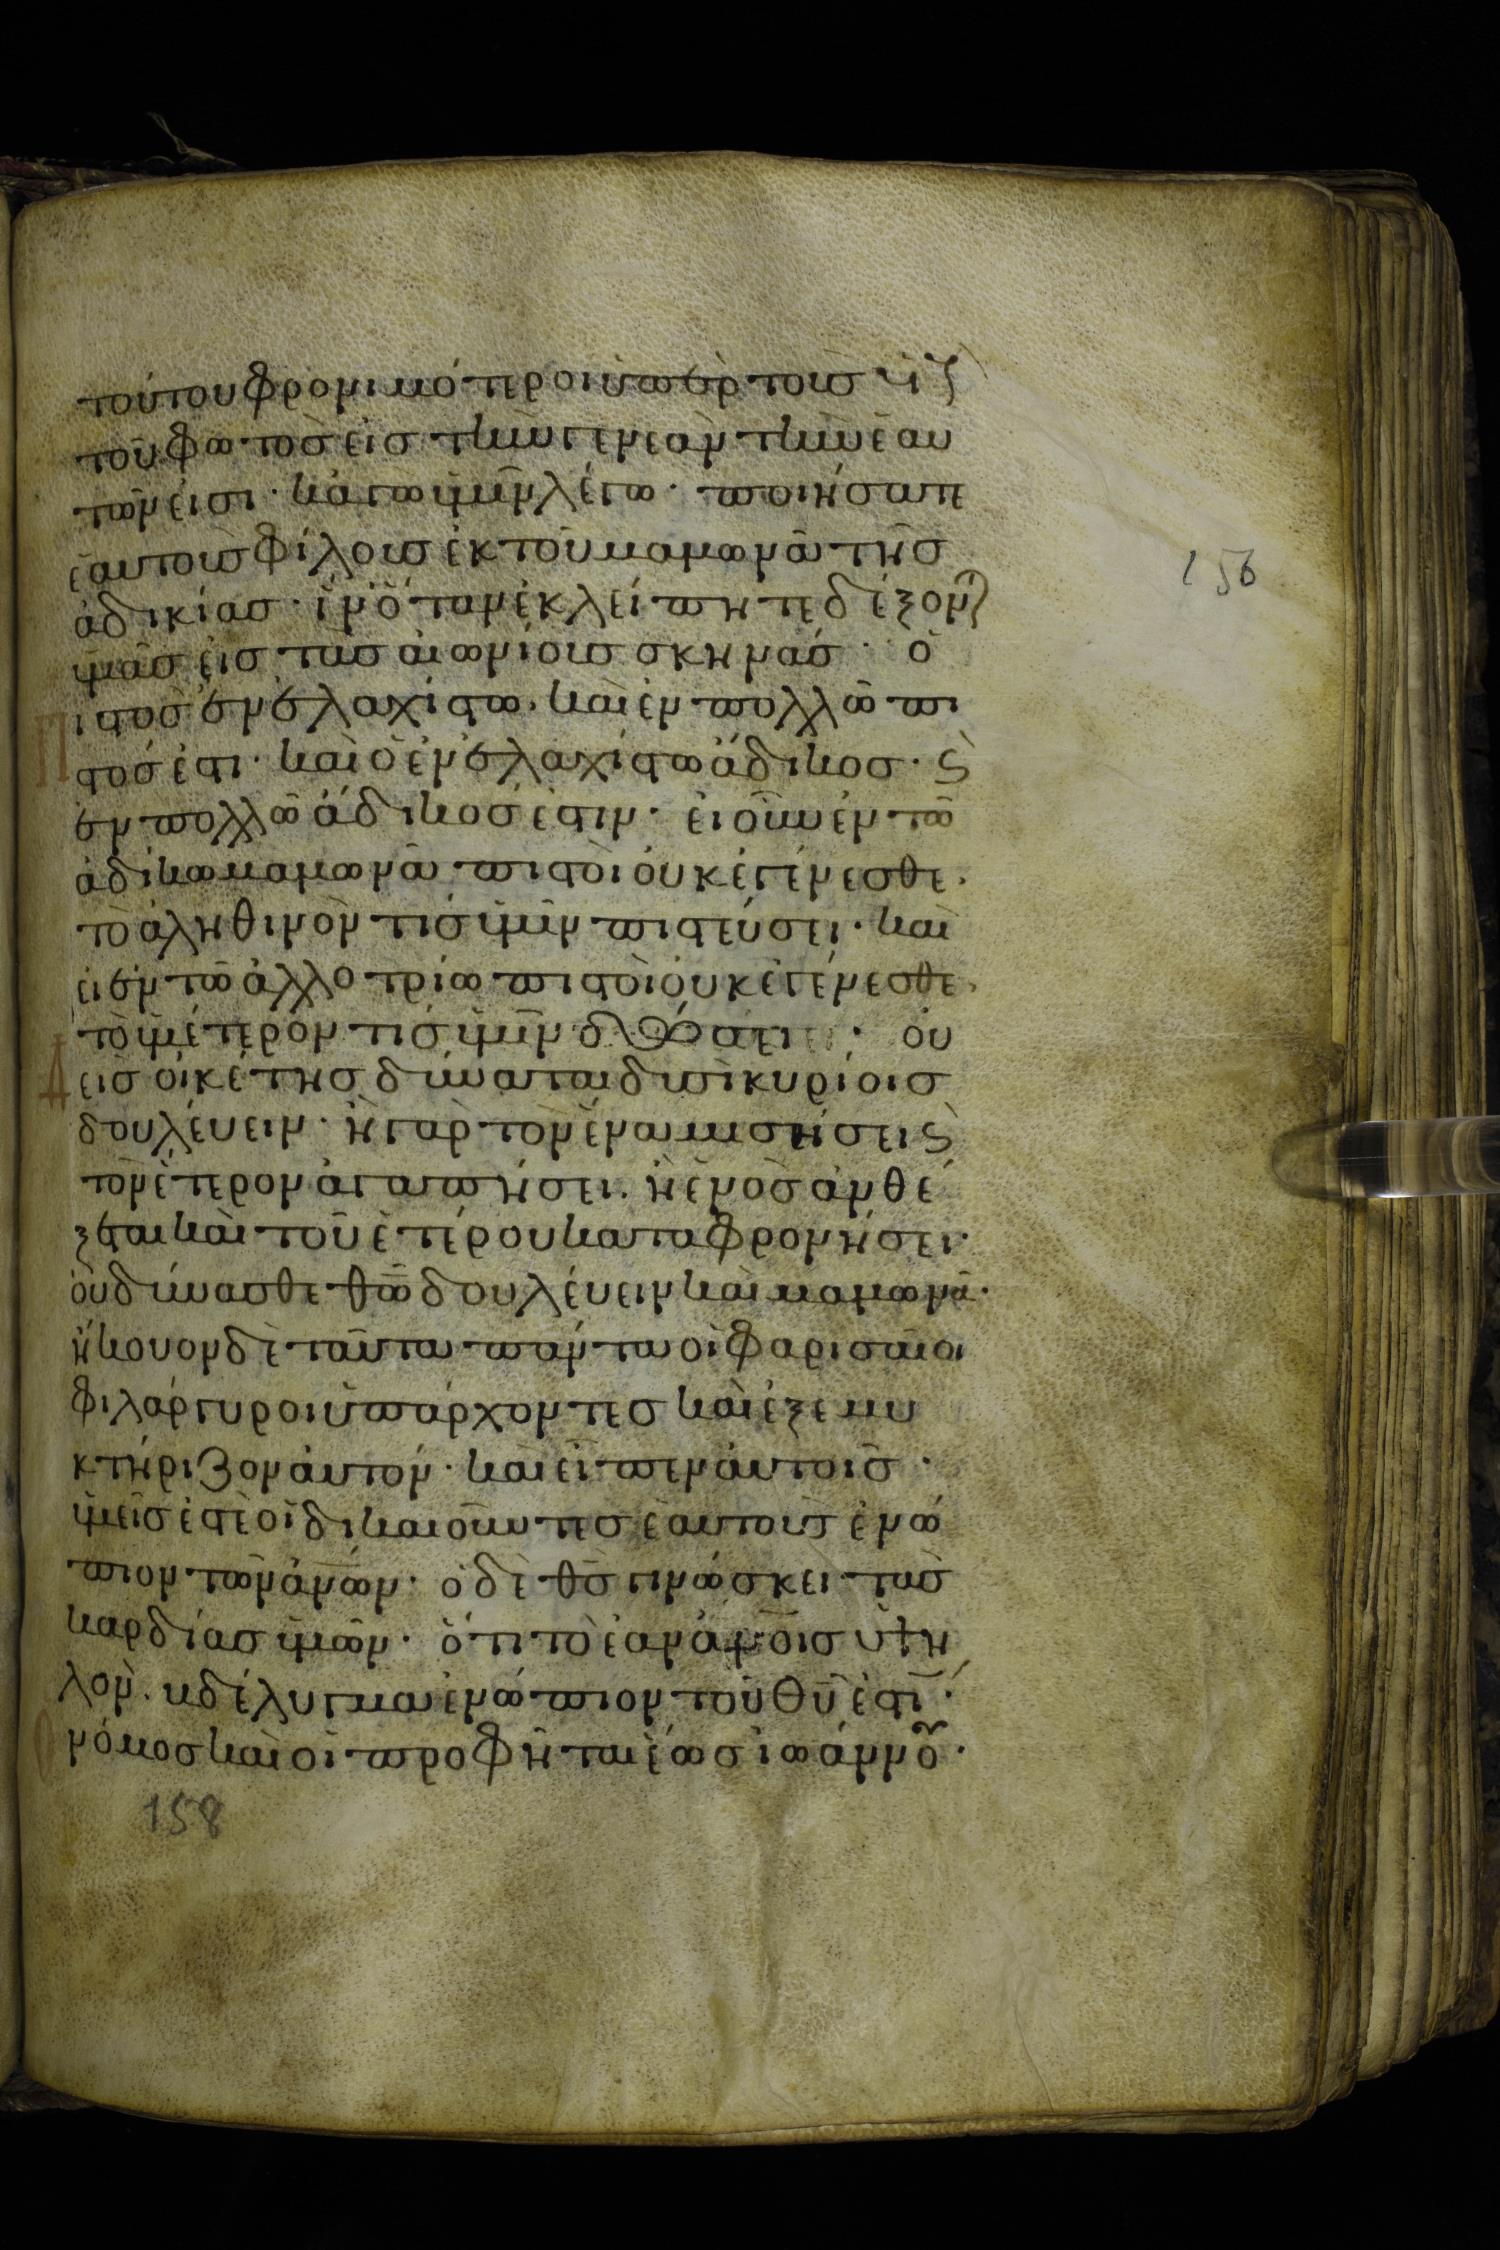 τούτου φρονιμότεροι ὑπὲρ τοὺς υἱ
τοῦ φωτὸς εἰς τὴν γενεὰν τὴν ἑαυ
τῶν εἰσι· κἀγὼ ὑμῖν λέγω· ποιήσατε
ἑαυτοῖς φίλους ἐκ τοῦ μαμωνᾶ τῆς
ἀδικίας· ἵν' ὅταν ἐκλείπητε δέξον
ὑμᾶς εἰς τὰς αἰωνίους σκηνάς· ὁ
156
Πιστὸς ἐν ἐλαχίστω, καὶ ἐν πολλῶ πι
στός ἐστι· καὶ ὁ ἐν ἐλαχίστω ἄδικος· ϛ
ἐν πολλῶ ἄδικός ἐστιν· εἰ οὖν ἐν τῶ
ἀδίκω μαμωνᾶ πιστοὶ οὐκ ἐγένεσθε·
τὸ ἀληθινὸν τίς ὑμῖν πιστεύσει· καὶ
εἰ ἐν τῶ ἀλλοτρίω πιστοὶ οὐκ ἐγένεσθε·
τὸ ὑμέτερον τίς ὑμῖν δώσει · οὐ
Δεὶς οἰκέτης δύναται δυσὶ κυρίοις
δουλεύειν· ἢ γὰρ τὸν ἕνα μισήσει ϛ
τὸν ἕτερον ἀγαπήσει· ἢ ἑνὸς ἀνθέ
ξεται καὶ τοῦ ἑτέρου καταφρονήσει·
οὐ δύνασθε θῶ δουλεύειν καὶ μαμωνᾶ·
ἤκουον δὲ ταῦτα πάντα οἱ φαρισαῖοι
φιλάργυροι ὑπάρχοντες καὶ ἐξεμυ
κτήριζον αὐτόν· καὶ εἶπεν αὐτοῖς·
ὑμεῖς ἐστὲ οἱ δικαιοῦντες ἑαυτοὺς ἐνώ
πιον τῶν ἀνων· ὁ δὲ θς γινώσκει τὰς
καρδίας ὑμῶν· ὅτι τὸ ἐν ἀνοις ὑψη
λὸν· βδέλυγμα ἐνώπιον τοῦ θυ ἐστι·
Ο νόμος καὶ οἱ προφῆται ἕως ἰωάννου·
158